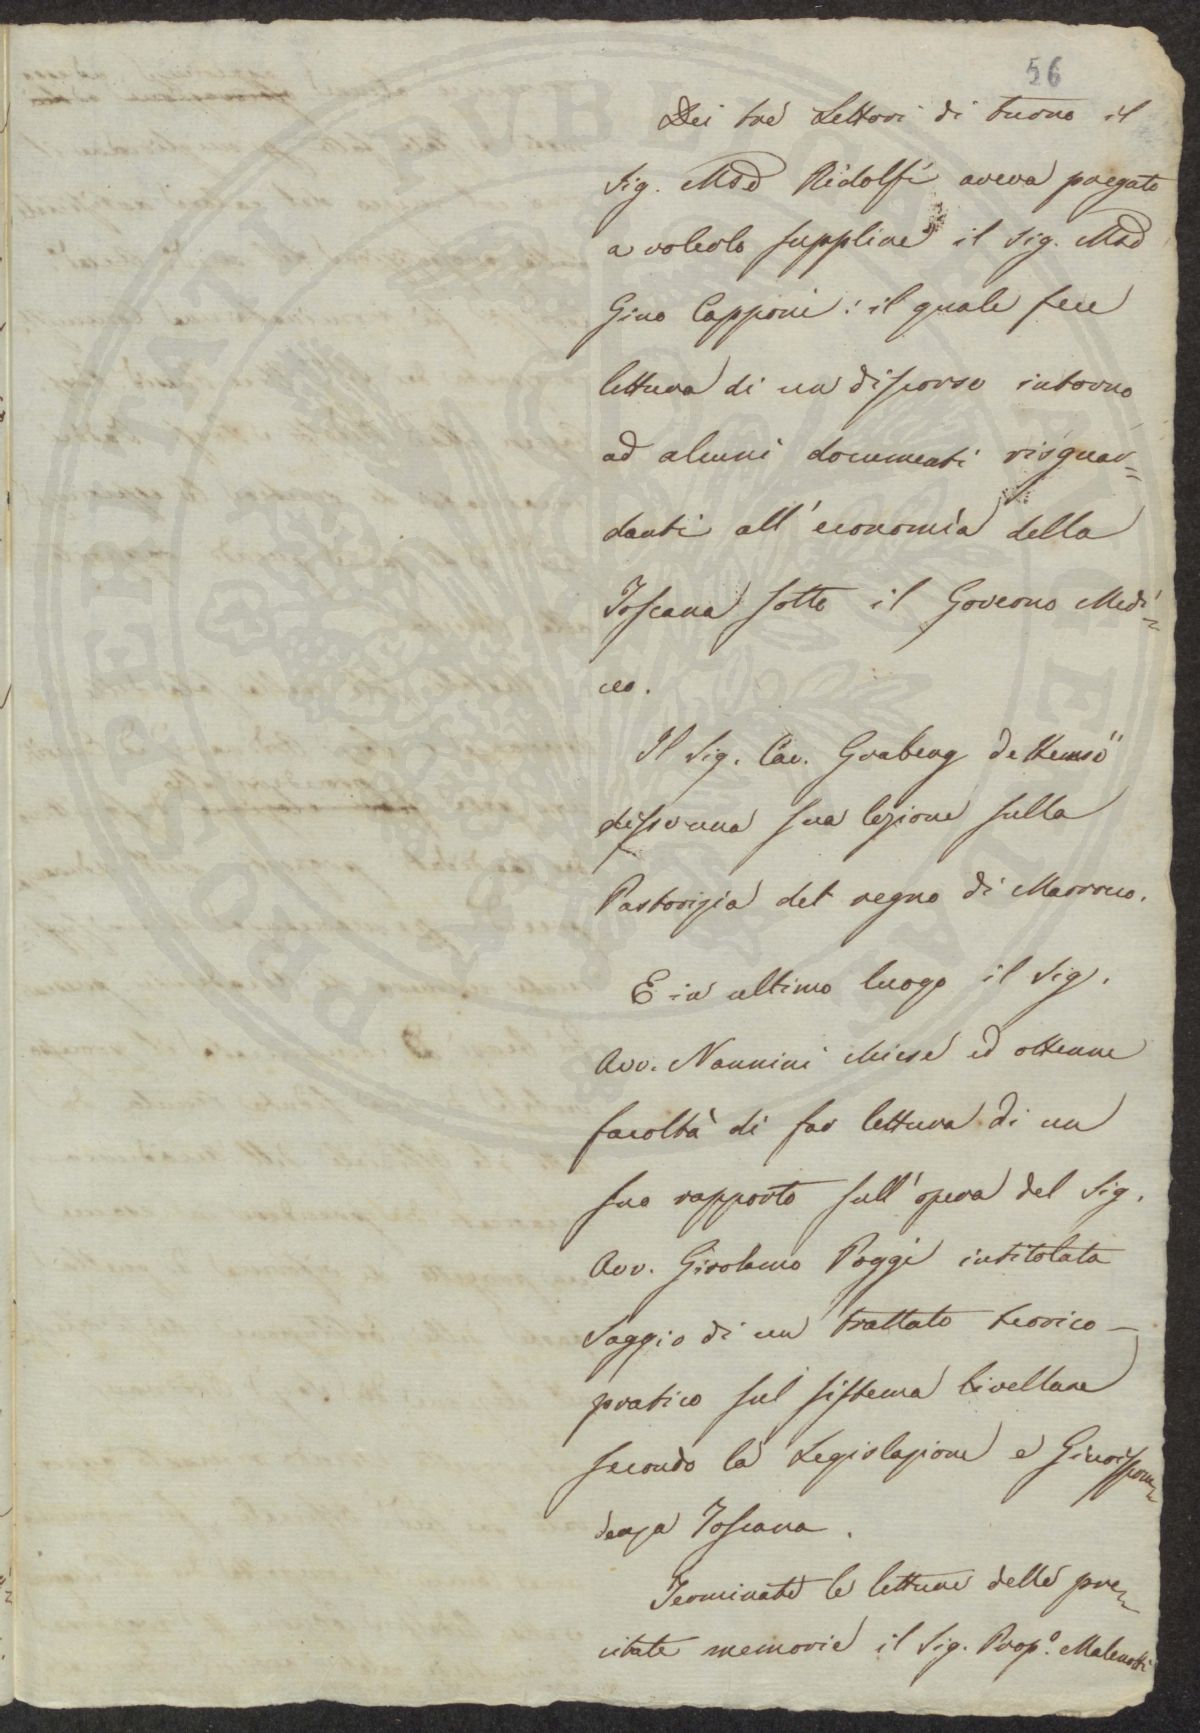 56
Dei tre Lettori di turno il
Sig. M.se Ridolfi aveva pregato
a volerlo supplire il Sig. M.se
Gino Capponi: il quale fece
lettura di un discorso intorno
ad alcuni documenti risguar=
danti all'economia della
Toscana sotto il Governo Medi=
ceo.
Il Sig. Cav. Graberg de Hemsö
disse una sua lezione sulla
Pastorizia del regno di Marrocco.
E in ultimo luogo il Sig.
Avv. Nannini chiese ed ottenne
facoltà di far lettura di un
suo rapporto sull'opera del Sig.
Avv. Girolamo Poggi intitolata
Saggio di un trattato teorico-
pratico sul sistema livellare
secondo la Legislazione e Giurispru=
denza Toscana.
Terminate le letture delle pre=
citate memorie il Sig. Prop.o Malenotti